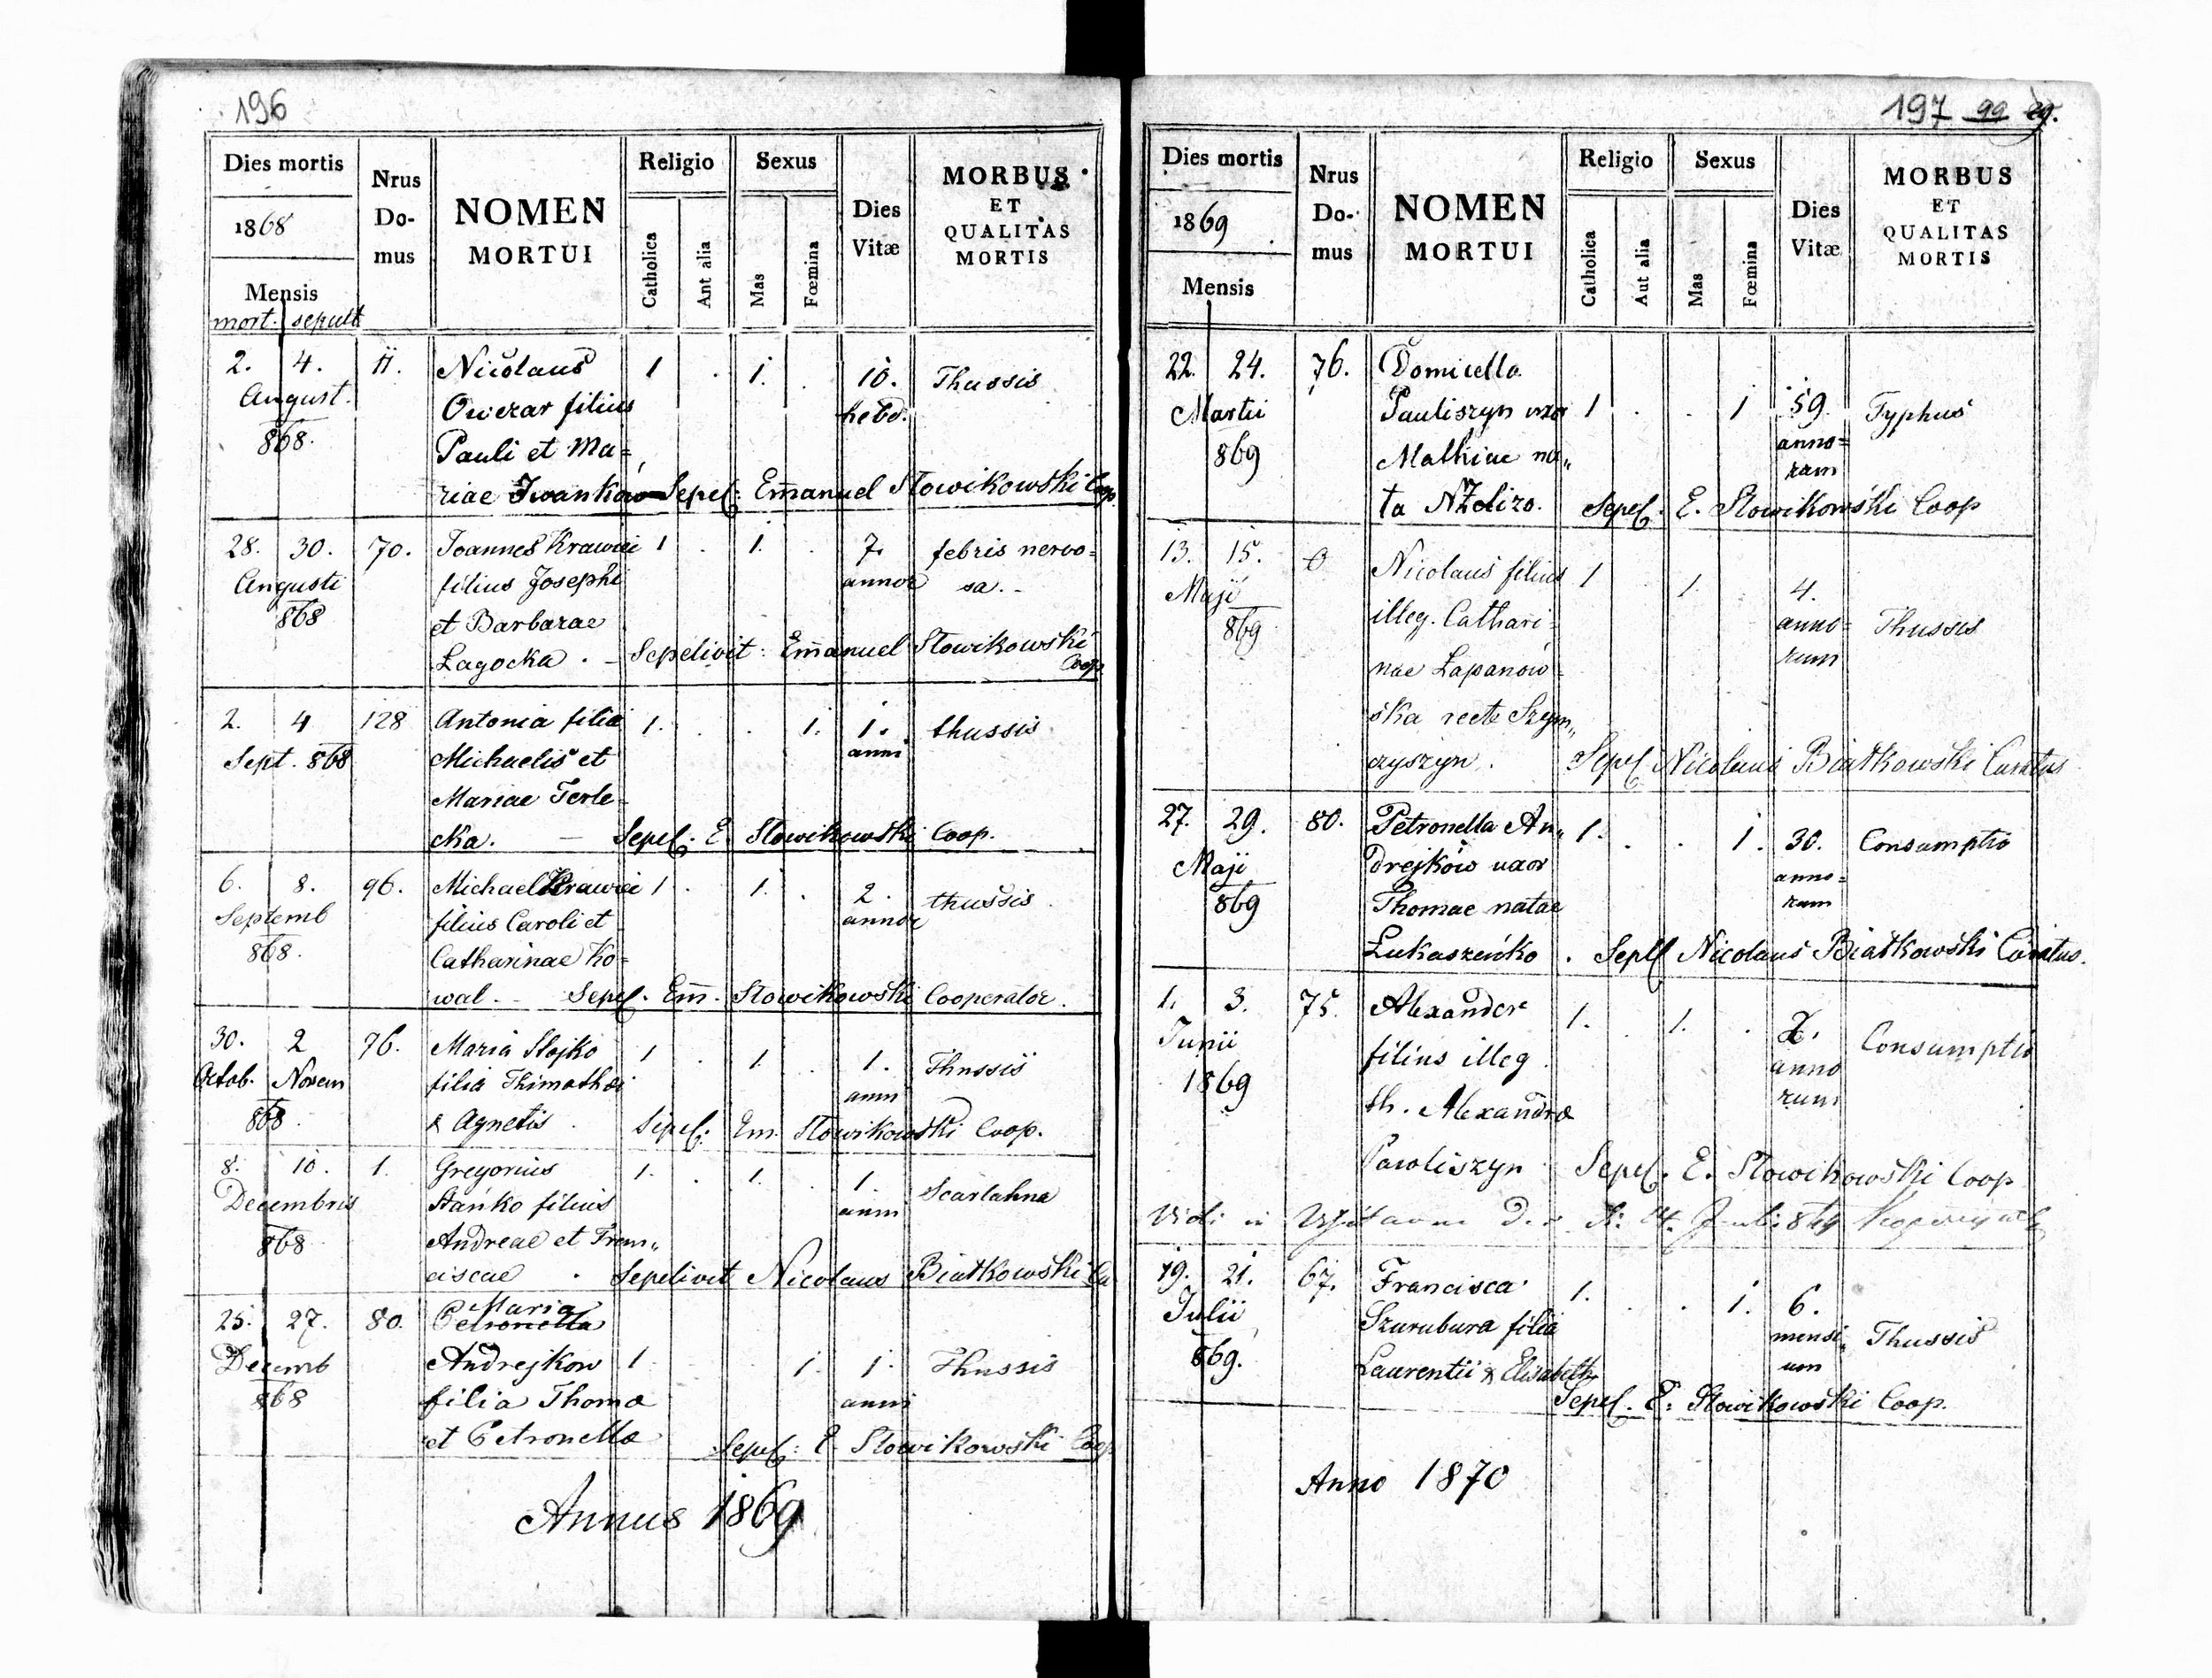 196
Dies mortis
1868
Mensis
mort. sepult
Nrus Do- mus
NOMEN
MORTUI
Religio
Catholica
Ant alia
Sexus
Mas
Fœmina
Dies Vitæ
MORBUS
ET
QUALITAS
MORTIS
2. 4. 11. Nicolaus 1 . 1. . 10. Thussis
August. Owczar filius hebd.
868. Pauli et Ma=
riae Iwankow Sepel: Em̄anuel Słowikowski Coop
28. 30. 70. Joannes Krawiei 1 . 1. . 7. febris nervo=
Augusti filius Josephi annor sa. -
868 et Barbarae
Lagocka . - Sepelivit : Em̄anuel Słowikowski
Coop.
2. 4 128 Antonia filia 1. . . 1. 1. thussis
Sept. 868 Michaelis et anni
Mariae Terle-
cka. — Sepel. E. Słowikowski Coop.
6. 8. 96. Michael Krawiei 1 . 1. . 2. thussis
Septemb filius Caroli et annor
868. Catharinae Ko=
wal. - Sepel. Em̄. Słowikowski Cooperator.
30. 2 76. Maria Stojko 1 . 1. . 1. Thussis
Octob. Novem filia Thimothei anni
868 & Agnetis . Sepel: Em. Słowikowski Coop.
8. 10. 1. Gregorius 1. . 1. . 1. Scarlatina
Decembris Stańko filius anni
868 Andreae et Fran„
ciscae . Sepelivit Nicolaus Białkowski Cu
25. 27. 80. Maria
Petronella
Decemb Andrejkow 1. 1. 1. Thussis
868 filia Thoma anni
et Petronella Sepel: E. Słowikowski Coop
Annus 1869
197 99
Dies mortis
1869
Mensis
Nrus Do- mus
NOMEN
MORTUI
Religio
Catholica
Aut alia
Sexus
Mas
Fœmina
Dies Vitæ
MORBUS
ET
QUALITAS
MORTIS
22. 24. 76. Domicella
Martii Pauliszyn uxor 1 . . 1 59. Typhus
869 Mathiae na„ anno= rum
ta Sepel: E. Słowikowski Coop
13. 15. 0 Nicolaus filius 1 . 1. 4.
Maji illeg. Cathari= anno= Thussis
869 nae Lapanow= rum
ska recte Szym„
czyszyn . Sepel Nicolaus Białkowski Curatus
27. 29. 80. Petronella An„ 1. . . 1. 30. Consumptio
Maji drejków uxor anno=
869 Thomae natae rum
Lukaszeńko . Sepel Nicolaus Białkowski Curatus.
1. 3. 75. Alexander 1. . 1. . 2. Consumptio
Junii filius illeg . anno
1869 th. Alexandra rum
Pawliszyn Sepel. E. Słowikowski Coop
Vidi in
19. 21. 67. Francisca 1. . . 1. 6.
Julii Szurubura filia mensi„ Thussis
869. Laurentii & Elisabeth um
Sepel. E. Słowikowski Coop.
Anno 1870